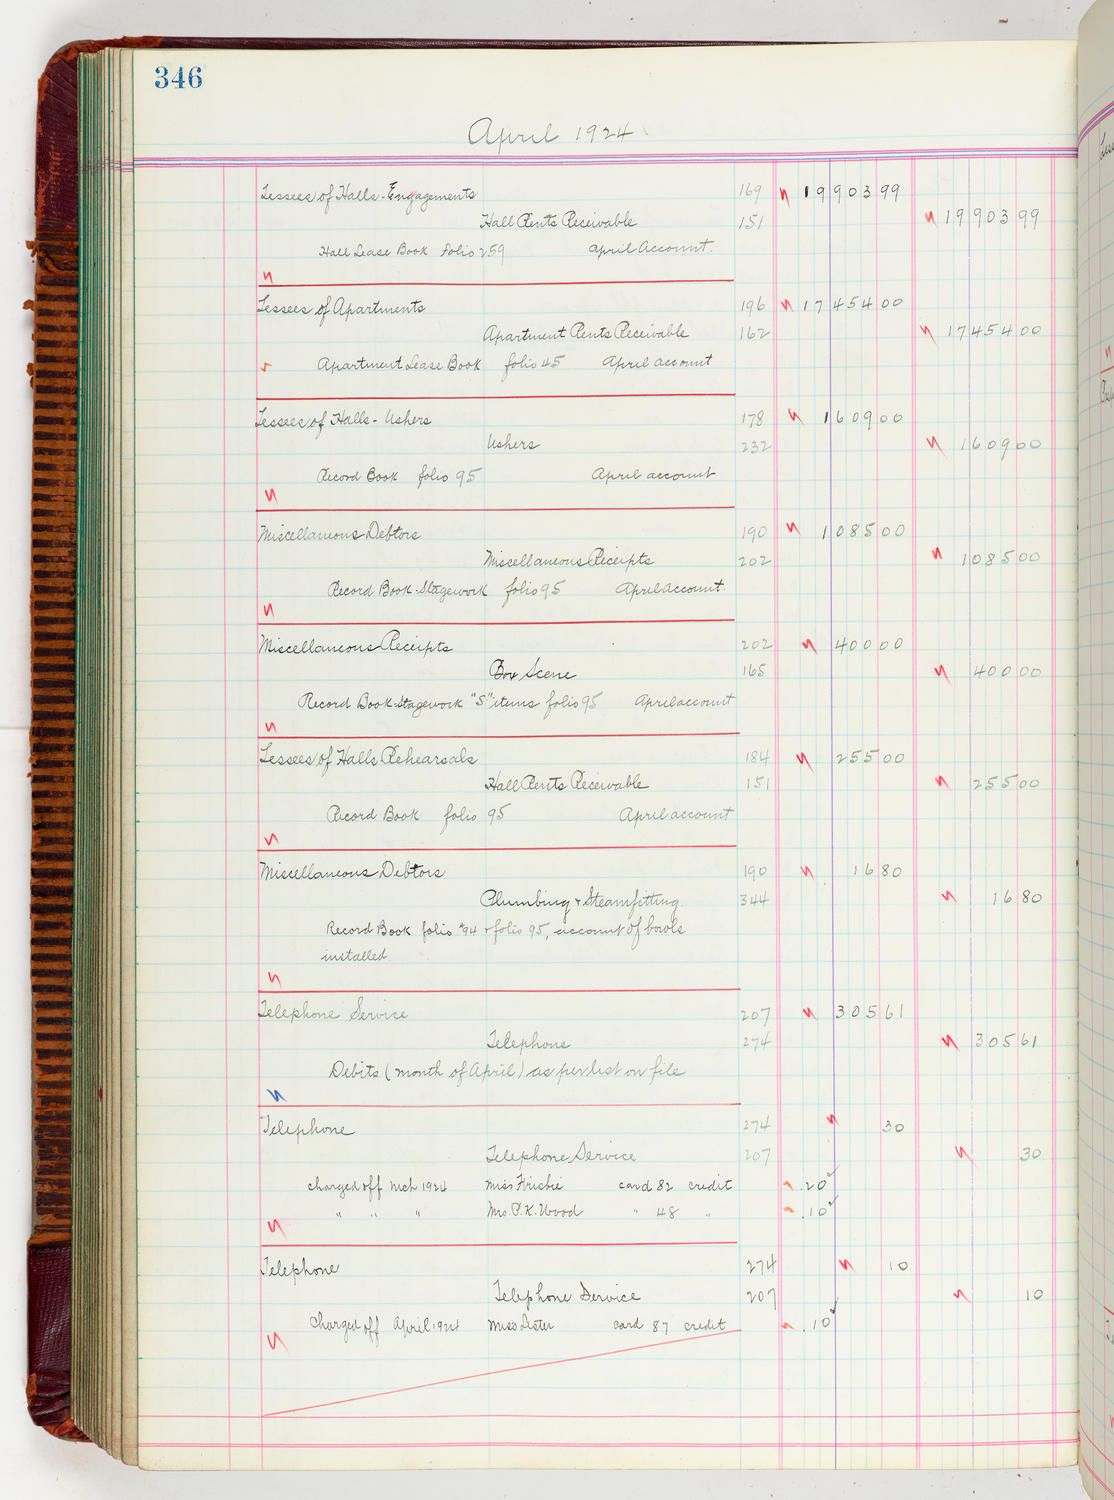 346
April 1924
Lessees of Halls - Engagements 169 19903 99
Hall Rents Receivable 151 19903 99
Hall Lease Book folio 259 April Account.
Lessees of Apartments 196 17454 00
Apartment Rents Receivable 162 17454 00
Apartment Lease Book folio 45 April account
Lessees of Halls - Ushers 178 1609 00
Ushers 232 1609 00
Record Book folio 95 April account
Miscellaneous Debtors 190 1085 00
Miscellaneous Receipts 202 1085 00
Record Book - Stagework folio 95 April account.
Miscellaneous Receipts 202 400 00
Box Scene 165 400 00
Record Book - Stagework "S" items folio 95 April account
Lessees of Halls Rehearsals 184 255 00
Hall Rents Receivable 151 255 00
Record Book folio 95 April account
Miscellaneous Debtors 190 16 80
Plumbing + Steamfitting 344 16 80
Record Book folio 94 + folio 95, account of bowls
installed
Telephone Service 207 305 61
Telephone 274 305 61
Debits (month of April) as per list on file
Telephone 274 30
Telephone Service 207 30
Charged off Mch 1924 Miss card 82 credit .20
" " " Mrs. P. K. Wood " 48 " .10
Telephone 274 10
Telephone Service 207 10
Charged off April 1924 Miss Lister card 87 credit .10